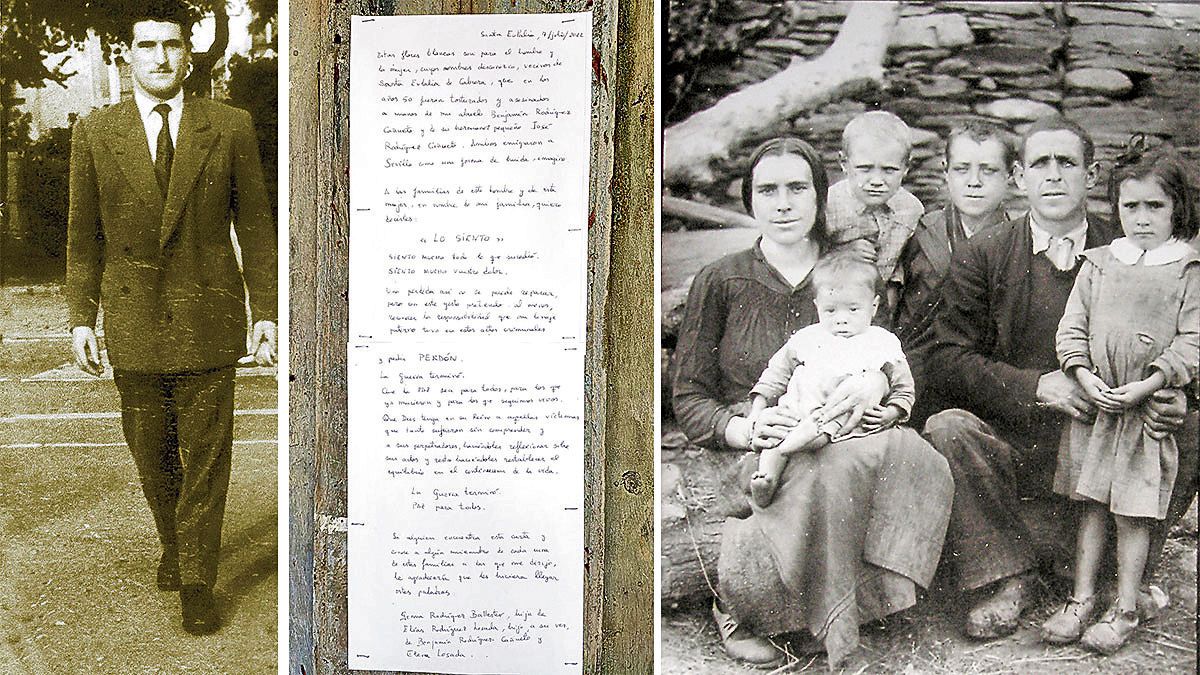 Santa Eulalia, 9/julio/2022
Estas flores blancas son para el hombre y
la mujer, cuyos nombres desconozco, vecinos de
Santa Eulalia de Cabrera, que en los
años 50 fueron torturados y asesinados
a manos de mi abuelo Benjamín Rodríguez
Cañueto y de su hermano pequeño José
Rodríguez Cañueto. Ambos emigraron a
Sevilla como una forma de huida, imagino
A las familias de este hombre y de esta
mujer, en nombre de mi familia, quiero
decirles:
« LO SIENTO »
SIENTO mucho todo lo que sucedió.
SIENTO mucho vuestro dolor.
Una pérdida así no se puede reparar,
pero con este gesto pretendo, al menos,
la responsabilidad que mi linaje
paterno tuvo en estos actos criminales
y pedir PERDÓN.
La guerra terminó.
Que la PAZ sea para todos, para los que
ya murieron y para los que seguimos vivos.
Que Dios tenga en su Reino a aquellas víctimas
que tanto sufrieron sin comprender y
a sus perpetradores, haciéndoles reflexionar sobre
sus actos y haciéndoles restablecer el
equilibrio en el de la vida.
La Guerra terminó.
PAZ para todos.
Si alguien encuentra esta carta y
conoce a algún miembro de cada una
de estas familias a las que me dirijo,
le agradecería que les hiciera llegar
estas palabras.
Gemma Rodríguez Ballester, hija de
Elías Rodríguez Losada, hijo a su vez,
de Benjamín Rodríguez Cañueto y
Elena Losada.